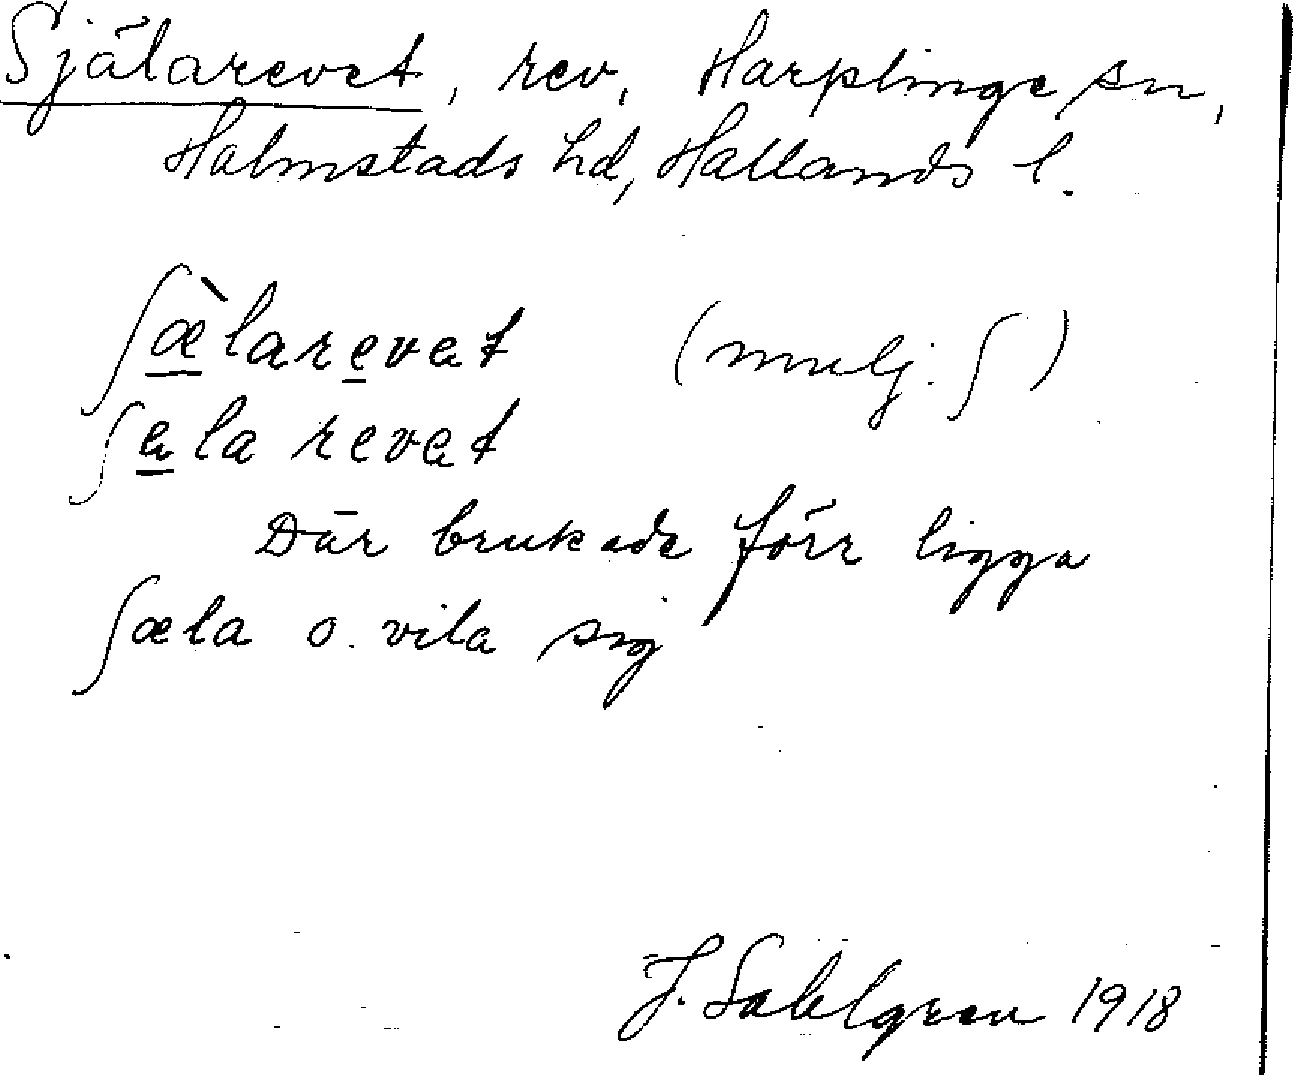 Själarevet, rev, Harplinge sn,
Halmstads hd, Hallands l.
ʃæ̀larevət (mulj. ʃ)
ʃəla revət
Där brukade förr ligga
ʃæla o. vila sig
J. Sahlgren 1918